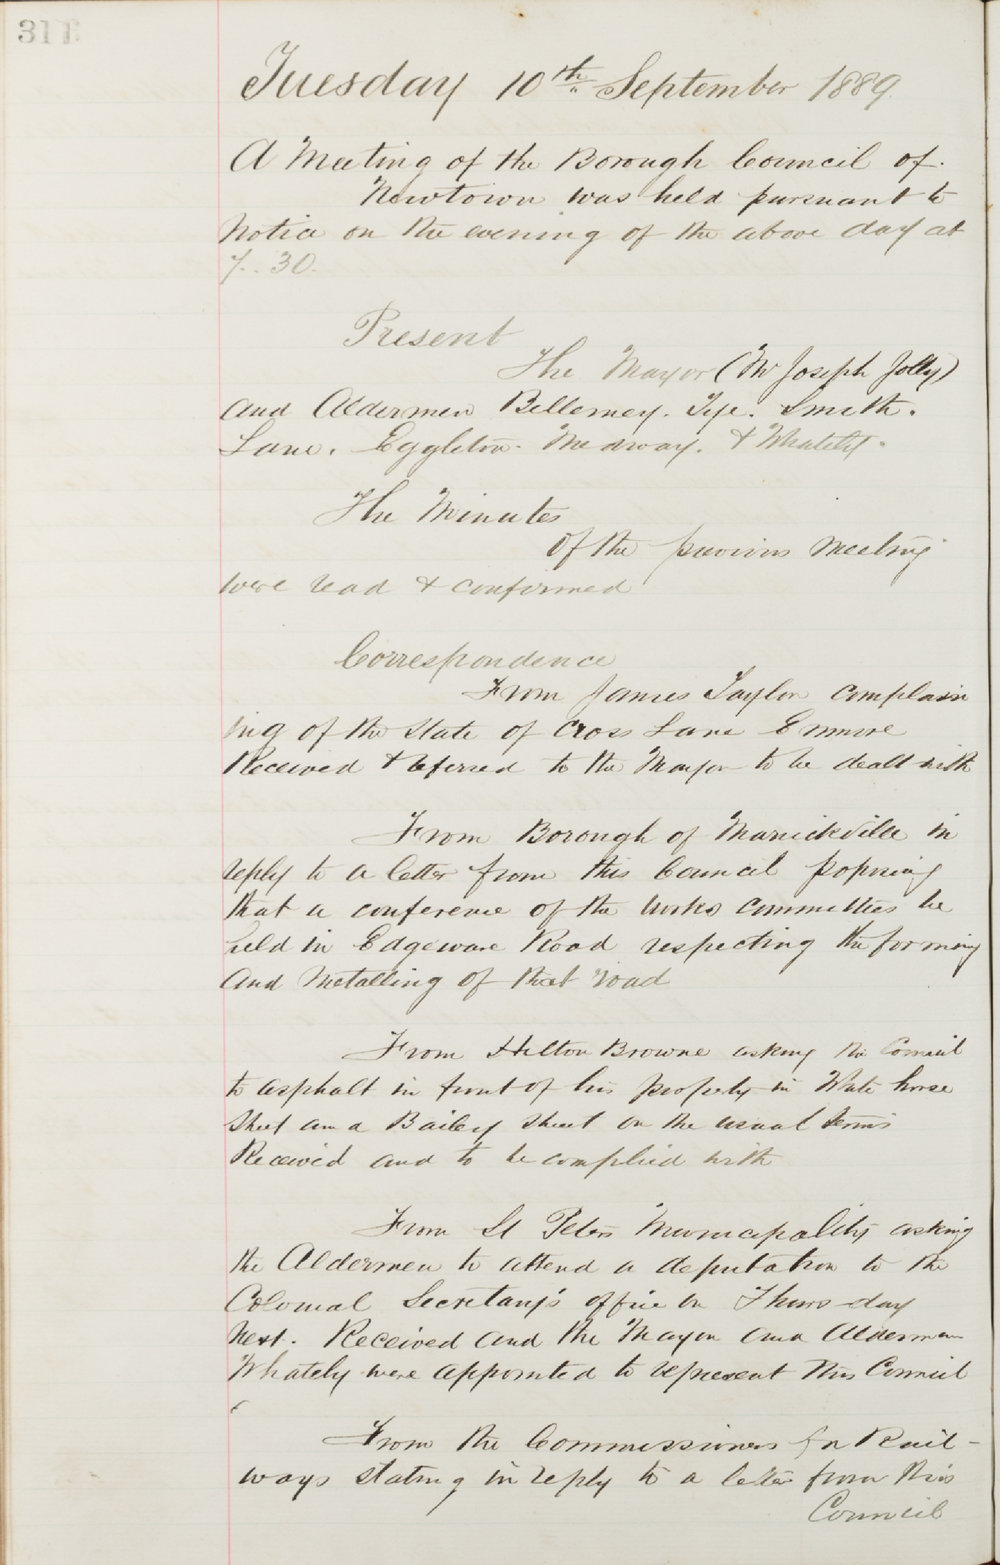 311
Tuesday 10th September 1889.
A Meeting of the Borough Council of
Newtown was held pursuant to
Notice on the evening of the above day at
7.. 30.
Present
The Mayor (Mr Joseph Jolly)
and Aldermen Bellemey. Tye. Smith.
Lane. Eggleton. Medway. & Whately.
The Minutes
Of the previous Meeting
were read & confirmed
Correspondence
From James Taylor complain
ing of the State of Cross Lane Enmore
Received & referred to the Mayor to be dealt with
From Borough of Marrickville in
reply to a letter from this Council poposing
that a conference of the works committees be
held in Edgeware Road respecting the forming
and Metalling of that road
From Hilton Browne asking the Council
to asphalt in front of his property in White horse
Street and Bailey Street on the usual terms
Received and to be complied with
From St Peters Municipality asking
the Aldermen to attend a deputation to the
Colonial Secretary's office on Thurs-day
next. Received and the Mayor and Alderman
Whately were appointed to represent this Council
From the Commissioners for Rail-
ways stating in reply to a letter from this
Council